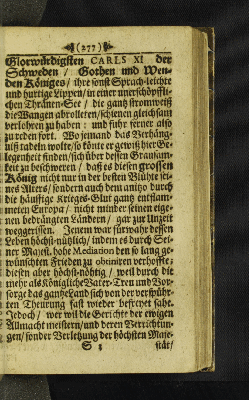 (277)
Glorwürdigsten CARLS XI der
Schweden / Gothen und Wen-
den Königes / ihre sonst Sprach-leichte
und hurtige Lippen / in einer unerschöpffli-
chen Thränen-See / die gantz stromweiß
die Wangen abrolleten / schienen gleichsam
verlohren zu haben: und fuhr ferner also
zu reden fort. Wo jemand das Verhäng-
niß tadeln wolte / so könte er gewiß hier Ge-
legenheit finden / sich über dessen Grausam-
keit zu beschweren / daß es diesen grossen
König nicht nur in der besten Blüthe sei-
nes Alters / sondern auch dem anitzo durch
die häuffige Krieges-Glut gantz entflam-
meten Europa / nicht minder seinen eige-
nen bedrängten Ländern / gar zur Unzeit
weggerissen. Jenem war fürwahr dessen
Leben höchst-nützlich / indem es durch Sei-
ner Majest. hohe Mediation den so lang ge-
wünschten Frieden zu obtiniren verhoffte /
diesen aber höchst-nöthig / weil durch die
mehr als Königliche Vater-Treu und Vor-
sorge das gantze Land sich von der
Theurung fast wieder befreyet sahe.
Jedoch / wer wil die Gerichte der ewigen
Allmacht meistern / und deren Verrichtun-
gen / sonder Verletzung der höchsten Maje-
S 3 stät /